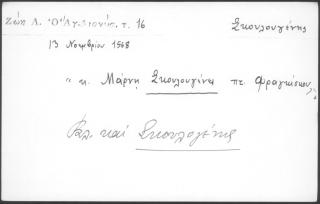 Ζώη Λ. Ὁ Ἀγιδιονύσ. τ. 16 Σκουλουγένης
13 Νοεμβρίου 1568
" κ. Μάρκη Σκουλουγένη πτ. Φραγκίσκου "
Βλ. καί Σκουλογένης